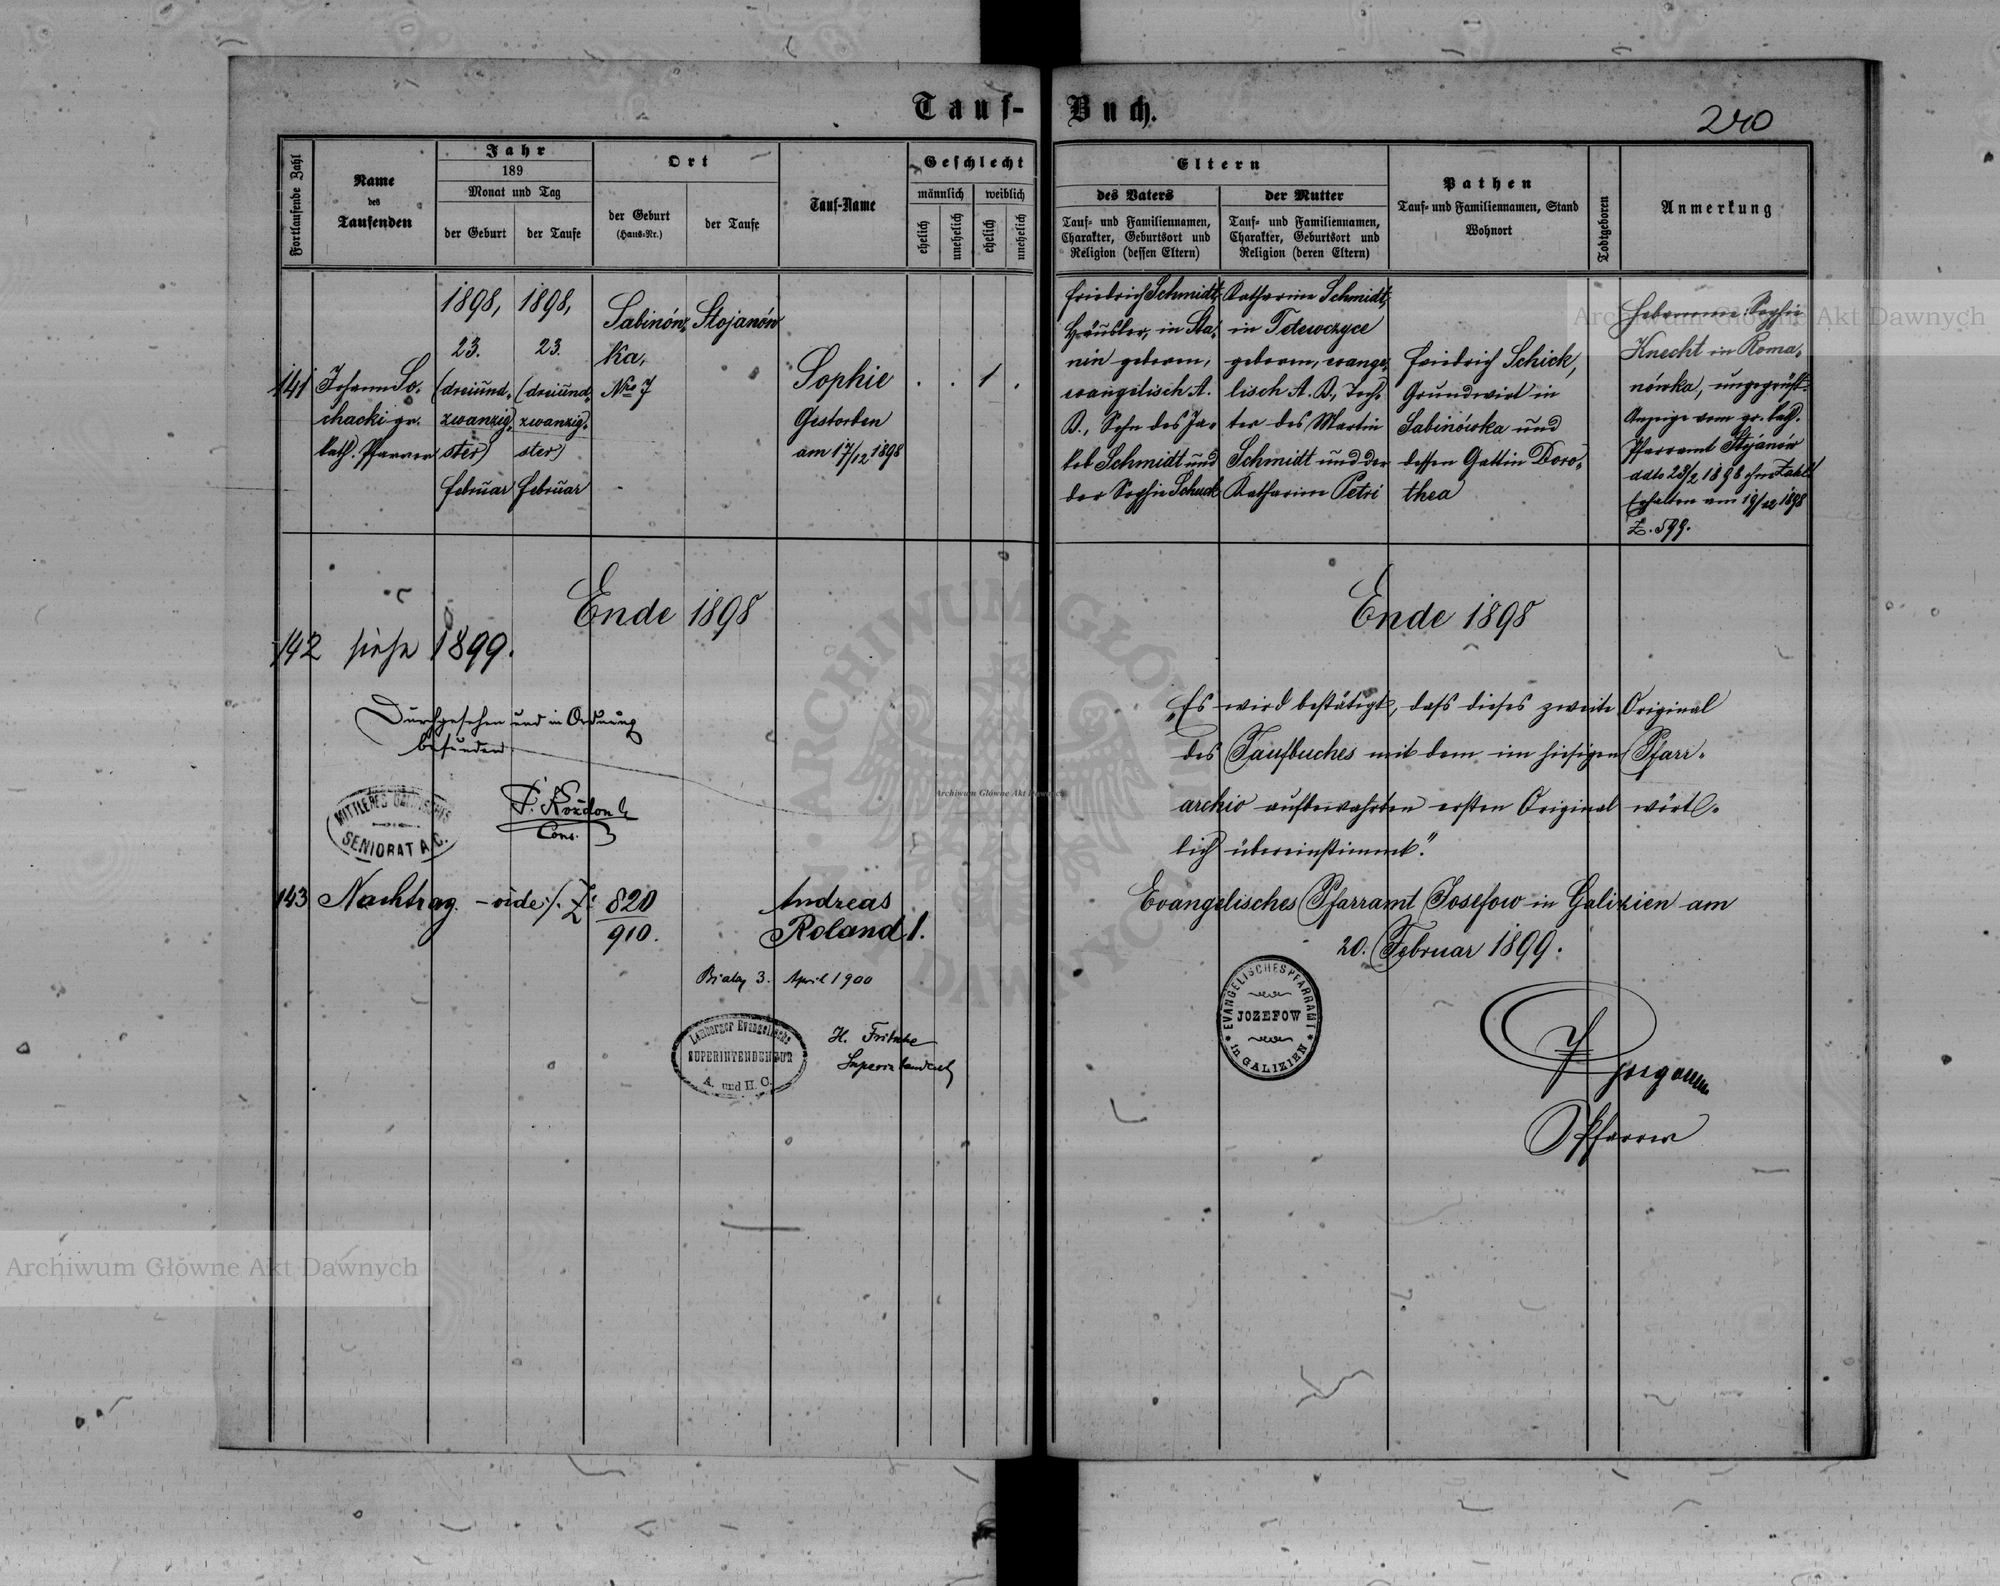 Tauf-Buch.
240
Fortlaufende Zahl
Name
des
Taufenden
Jahr
189
Monat und Tag
der Geburt
der Taufe
Ort
der Geburt
(Haus-Nr.)
der Taufe
Tauf-Name
Geschlecht
männlich
weiblich
ehelich
unehelich
ehelich
unehelich
Eltern
des Vaters
Tauf- und Familiennamen,
Charakter, Geburtsort und
Religion (dessen Eltern)
der Mutter
Tauf- und Familiennamen,
Charakter, Geburtsort und
Religion (deren Eltern)
Pathen
Tauf- und Familiennamen, Stand
Wohnort
Todtgeboren
Anmerkung
141
Johann So-
chacki gr.
kath. Pfarrer
1898,
23.
(dreiund-
zwanzig-
ster)
Februar
1898,
23.
(dreiund-
zwanzig-
ster)
Februar
Sabinów-
ka,
Nro 7
Stojanów
Sophie
Gestorben
am 17/12 1898
. . 1 .
Friedrich Schmidt,
Häusler, in Sta-
nin geboren,
evangelisch A.
B., Sohn des Ja-
kob Schmidt und
der Sophie Schuck
Katharina Schmidt,
in Tetewczyce
geboren, evange-
lisch A. B., Toch-
ter des Martin
Schmidt und der
Katharina Petri
Friedrich Schick,
Grundwirt in
Sabinówka und
dessen Gattin Doro-
thea
Hebamme: Sophie
Knecht in Roma-
nówka, ungeprüft.
Anzeige vom gr. kath.
Pfarramt Stojanów
ddto 28/2 1898 ohne Zahl
Erhalten am 19/12 1898
Z. 599.
Ende 1898
Ende 1898
142 siehe 1899.
Durchgesehen und in Ordnung
befunden
MITTLERES
SENIORAT A. C.
Cons.
143 Nachtrag - vide ./. Z: 820
910.
Andreas
Roland 1.
Biala 3. April 1900
Lemberger Evangelische
SUPERINTENDENTUR
A. und H. C.
H. Fritsche
Superintendent
„Es wird bestätigt, dass dieses zweite Original
des Taufbuches mit dem im hiesigen Pfarr-
archiv aufbewahrten ersten Original wört-
lich übereinstimmt."
Evangelisches Pfarramt Josefow in Galizien am
20. Februar 1899.
EVANGELISCHES PFARRAMT
JOZEFOW
in GALIZIEN
Pfarrer
Archiwum Główne Akt Dawnych
Archiwum Główne Akt Dawnych
Archiwum Główne Akt Dawnych
ARCHIWUM GŁÓWNE AKT DAWNYCH